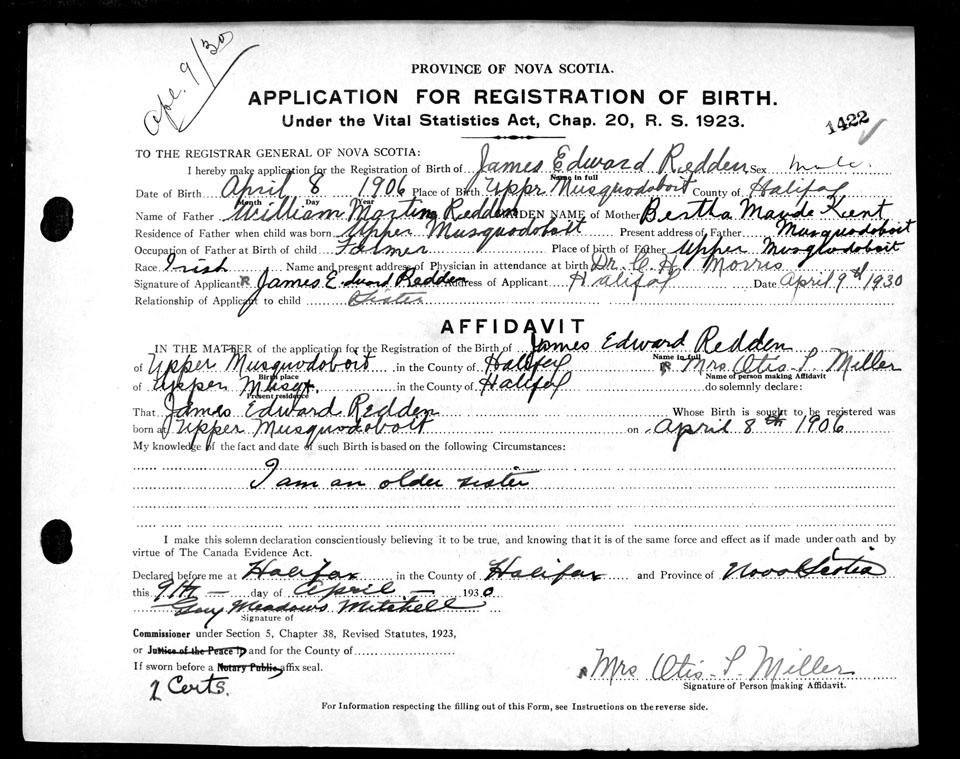 Ape. 9/30
PROVINCE OF NOVA SCOTIA.
APPLICATION FOR REGISTRATION OF BIRTH.
Under the Vital Statistics Act, Chap. 20, R. S. 1923.
1422
TO THE REGISTRAR GENERAL OF NOVA SCOTIA:
I hereby make application for the Registration of Birth of James Edward Redden Sex Male.
Name in full
Date of Birth April 8 1906 Place of Birth Uppr Musquodoboit County of Halifax
Month Day Year
Name of Father William Martin Redden MAIDEN NAME of Mother Bertha Maude Kent
Residence of Father when child was born Upper Musquodoboit Present address of Father Musquodoboit
Occupation of Father at Birth of child Farmer Place of birth of Father Upper Musquodoboit
Race Irish Name and present address of Physician in attendance at birth Dr. C. H. Morris
Signature of Applicant James Edward Redden Address of Applicant Halifax Date April 9th 1930
Relationship of Applicant to child Sister
AFFIDAVIT
IN THE MATTER of the application for the Registration of the Birth of James Edward Redden
Name in full
of Upper Musquodoboit in the County of Halifax Mrs. Otis L. Miller
Birth place Name of person making Affidavit
of Upper Musqt. in the County of Halifax do solemnly declare:
Present residence
That James Edward Redden Whose Birth is sought to be registered was
born at Upper Musquodoboit on April 8th 1906
My knowledge of the fact and date of such Birth is based on the following Circumstances:
I am an older sister
I make this solemn declaration conscientiously believing it to be true, and knowing that it is of the same force and effect as if made under oath and by
virtue of The Canada Evidence Act.
Declared before me at Halifax in the County of Halifax and Province of Nova Scotia
this 9th day of April 1930
Guy Meadows Mitchell
Signature of
Commissioner under Section 5, Chapter 38, Revised Statutes, 1923,
or Justice of the Peace in and for the County of
If sworn before a Notary Public, affix seal.
2 Certs.
Mrs Otis L Miller
Signature of Person making Affidavit.
For Information respecting the filling out of this Form, see Instructions on the reverse side.